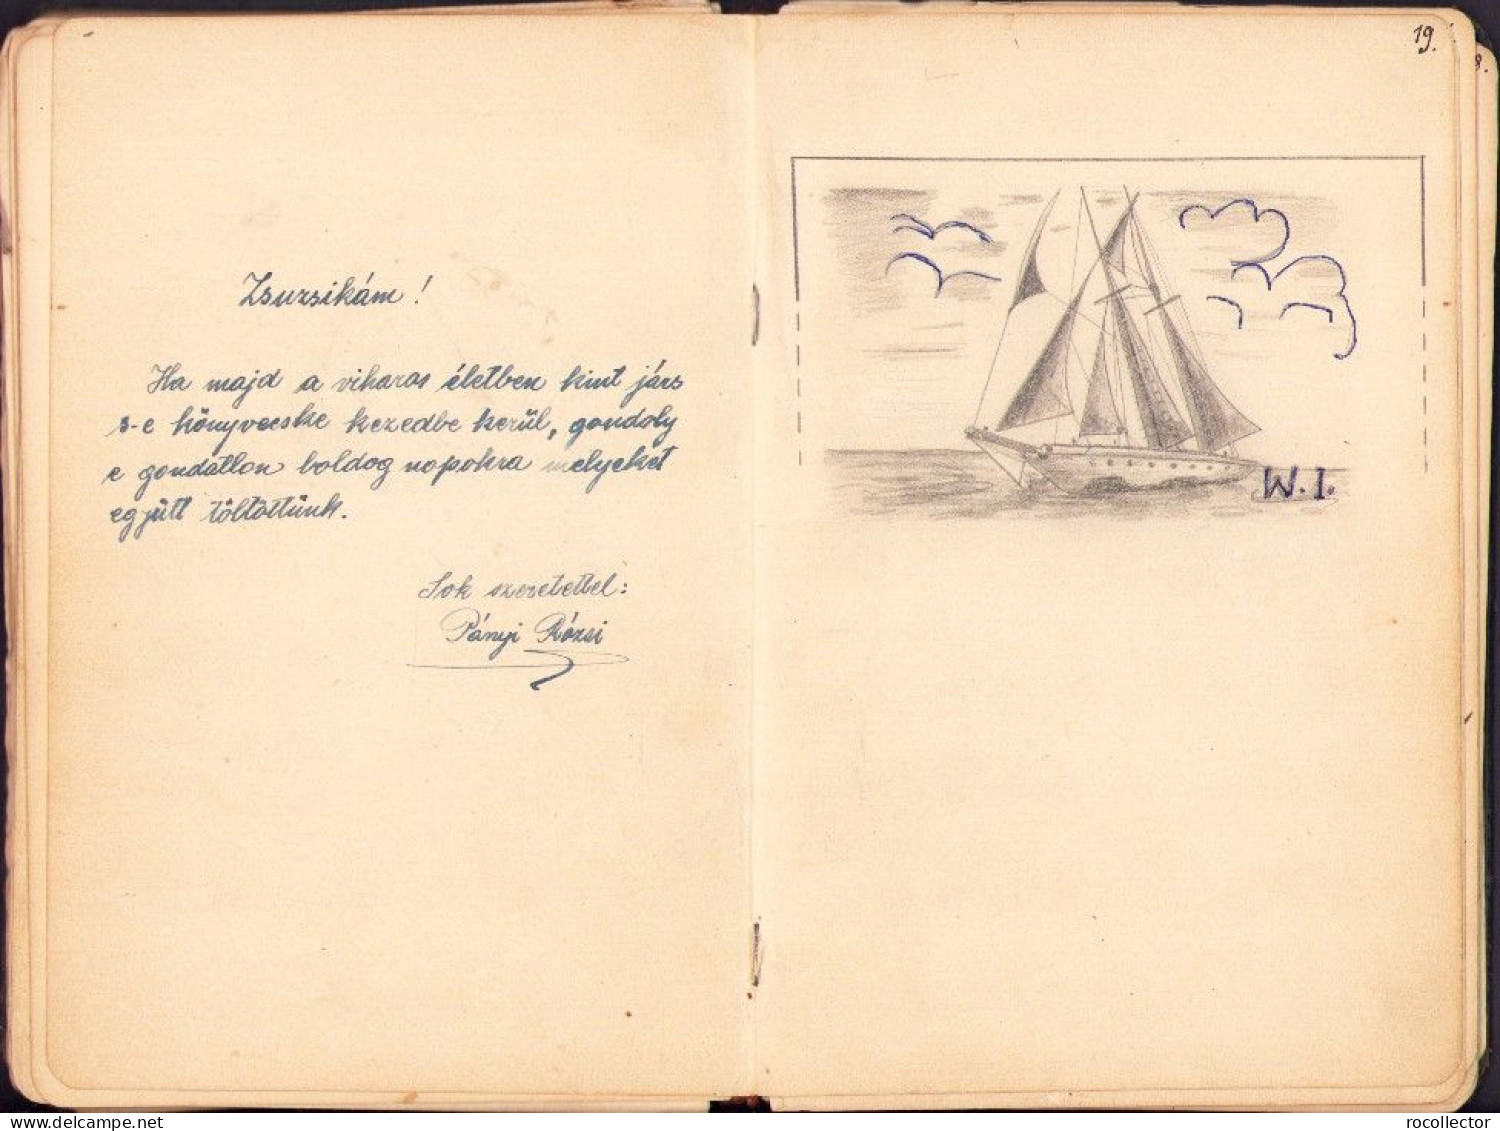 Zsuzsikám!
Ha majd a viharos életben kint jársz
s-e könyvecske kezedbe kerül, gondolj
e gondatlan boldog napokra melyeket
együtt töltöttünk.
Sok szeretettel:
Pányi Rózsi
19.
8.
W. I.
delcampe.net
rocollector